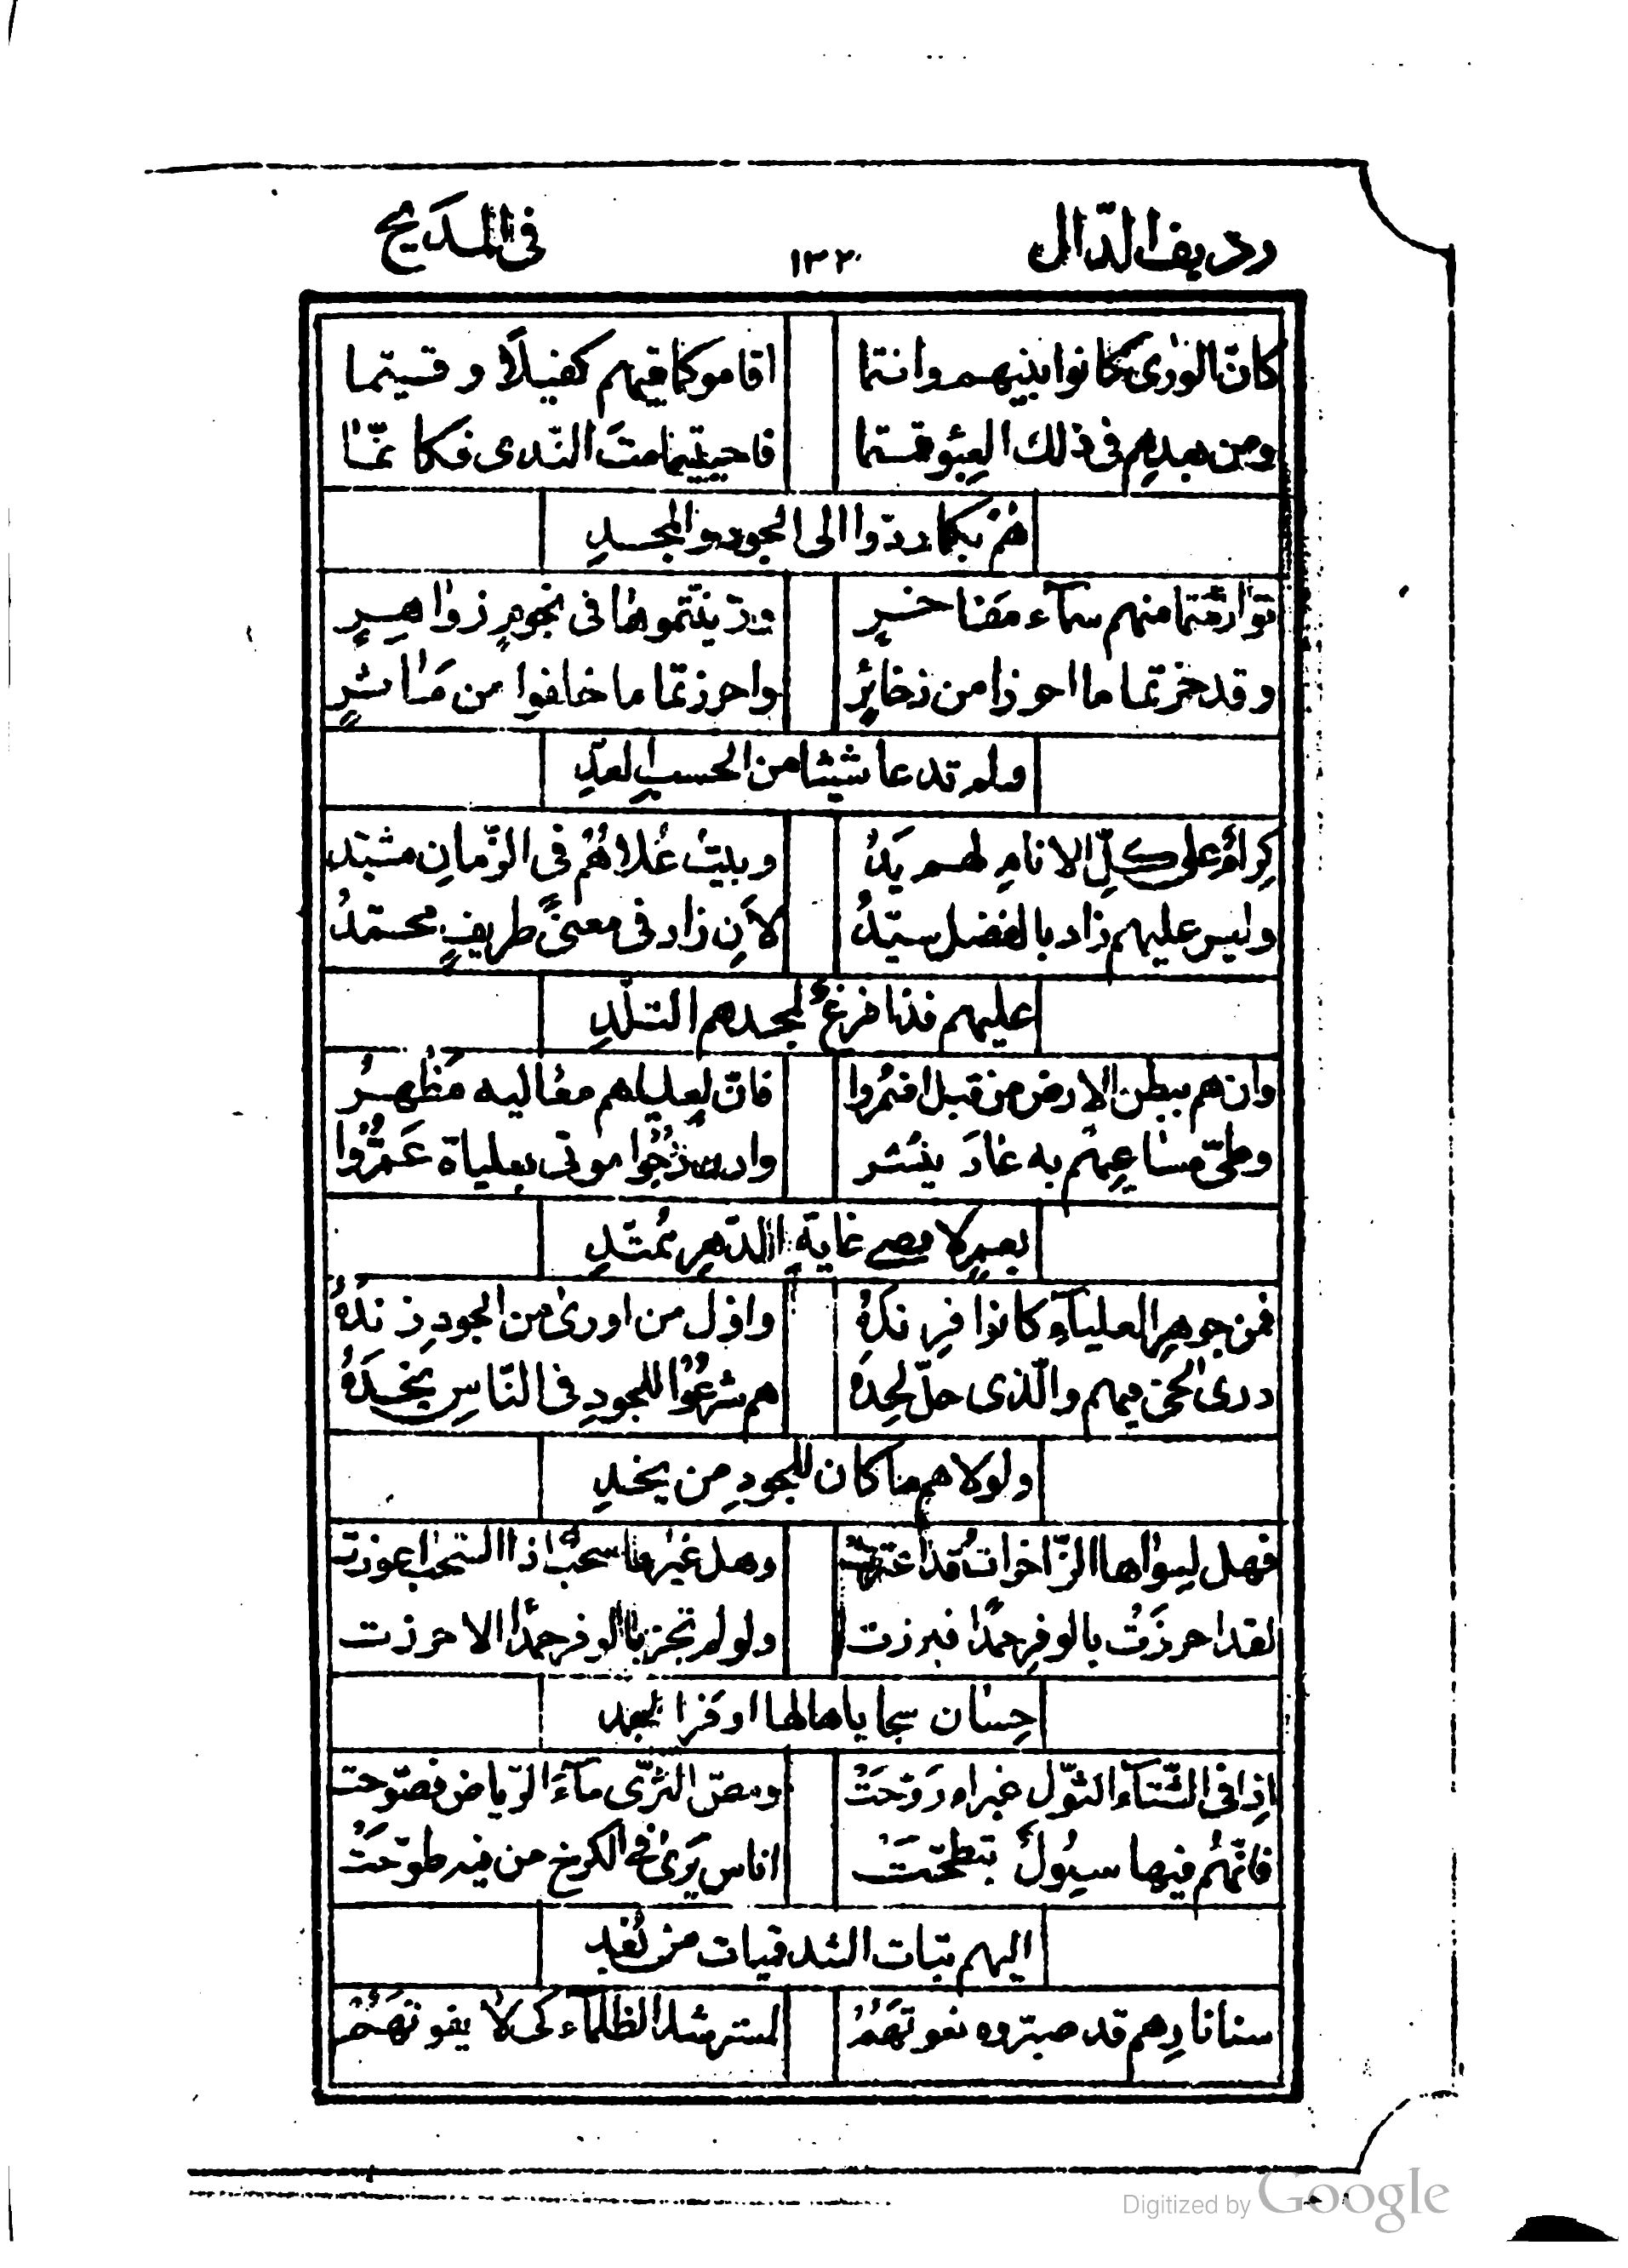 رديف الدّال ١٣٢ فى المديح
كانّ الورى كانوا بنيهم وانتما اقاموكما فيهم كفيلًا وقيّما
ومن بعدهم فى ذلك قمتما فاحييتما ميت النّدى فكانمّا
هُمْ بكما ردّوا الى الجود والمجدِ
توارثتما منهم سمآء مفاخرٍ وزيّنتموها فى نجومٍ زواهرٍ
وقد حزتما ما احرزوا من ذخايرٍ واحرزتما ما خلفوا من مآثرٍ
ولم تدعا شيئا من الحسب العدِّ
كِرامٌ على كلِّ الانامِ لهم يَدُ وبيتُ عُلاهُمْ فى الزّمانِ مشيّد
وليس عليهم زاد بالفضل سيّدُ لأن زاد فى معنىً طريفٍ محمّدُ
عليهم فذا فرعٌ لمجدهم التلدِ
وان هم ببطن الارض من قبل اقبروا فانّ لعلياهم معاليه مَظْهرُ
وطىّ مساعيهم به عادَ ينشر وان دُرجُوا موتى بعلياه عَمَّرُوا
بعمرٍ لا قصى غايةِ الدّهرِ مُمتدِّ
فمن جوهر العلياءِ كانوا فِرِندَهُ واوّل من اورى من الجودِ زندَهُ
درى الحىّ فيهم والّذى حلّ لحدَهُ هم شرعُوا للجودِ فى النّاسِ نجدَهُ
ولولاهم ما كان للجودِ من نجدِ
فهل لسواها الزّاخرات قد اعتزت وهل غيرها سحبٌ اذا السّحب اعوزت
لقد احرزَتْ بالوفرِ حمدًا فبرزت ولو لم تحز بالوفر حمدًا لاحرزت
حِسان سجاياها لها اوفر الحمد
اذا فى الشّتآء الشّول غبرا روّحَتْ ومصّ الثرّى مآءَ الرّياض فصوّحت
فانّهُم فيها سيُولٌ تبطّحَتْ اناس يَرَى فى الكرخ من فيد طوّحَتْ
اليهم بنات الشدقميات من بُعْدِ
سنا نارِهم قد صيّروه نعوتَهُمْ لمسترشد الظلمآء كى لا يفوتَهُمْ
Digitized by Google